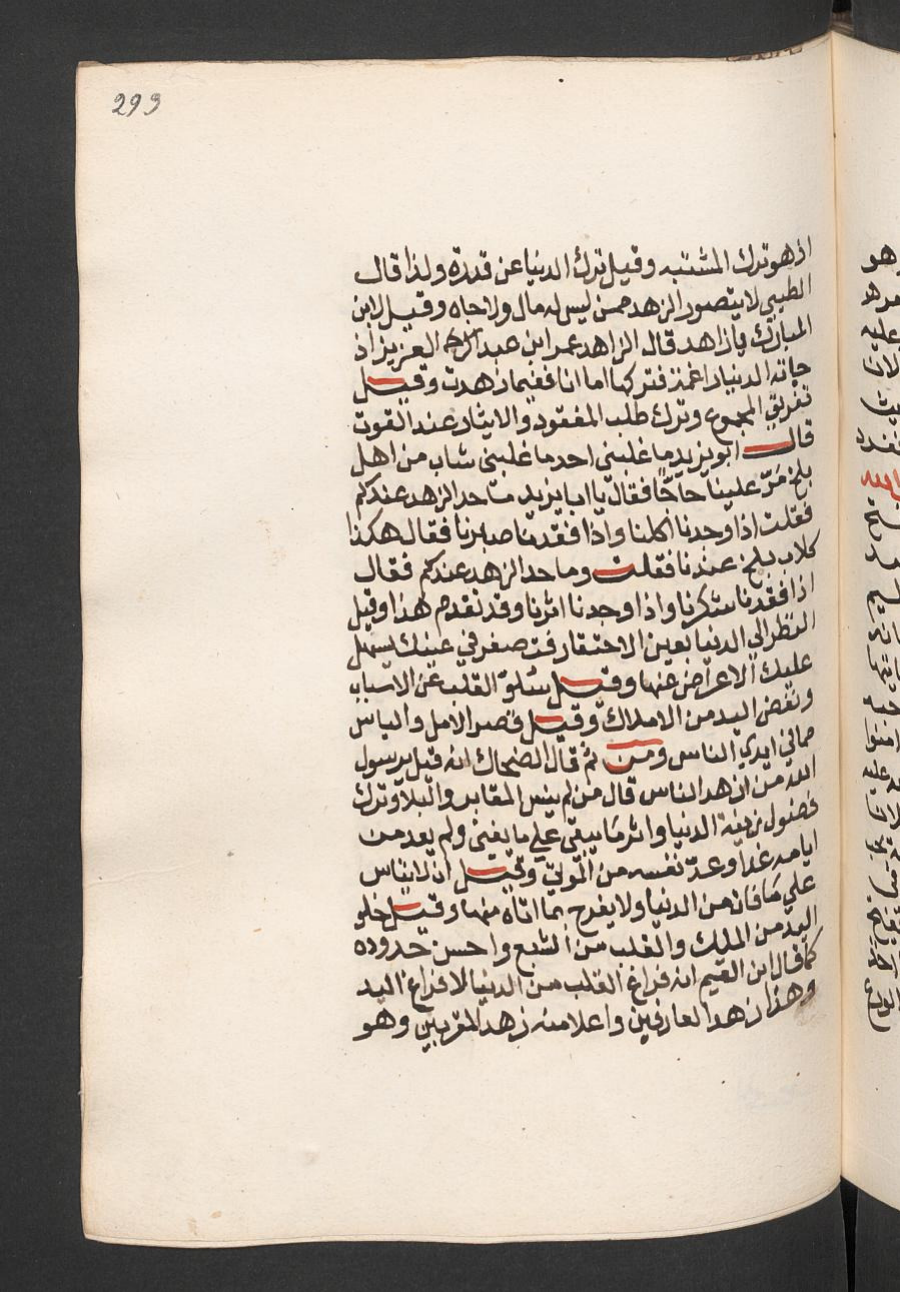 299
اذ هو ترك المشتبه وقيل ترك الدنيا عن قدرة ولذا قال
الطيبي لا يتصور الزهد ممن ليس له مال ولا جاه وقيل لابن
المبارك يا زاهد قال الزاهد عمر ابن عبد العزيز اذ
جاته الدنيا راغمة فتركها اما انا ففيما زهدت وقيل
تفريق المجموع وترك طلب المفقود والايثار عند القوت
قال ابو يزيد ما غلبني احد ما غلبني شاب من اهل
بلخ مَرّ علينا حاجًا فقال يا ابا يزيد ما حد الزهد عندكم
فقلت اذا وجدنا اكلنا واذا فقدنا صبرنا فقال هكذا
كلاب بلخ عندنا فقلت وما حد الزهد عندكم فقال
اذا فقدنا شكرنا واذا وجدنا اثرنا وقد تقدم هذا وقيل
النظر الي الدنيا بعين الاحتقار فتصغر في عينك يسهل
عليك الاعراض عنها وقيل سُلوّ القلب عن الاسباب
ونفض اليد من الاملاك وقيل قصر الامل والياس
مما في ايدي الناس ومن ثم قال الضحاك انه قيل يرسول
الله من ازهد الناس قال من لم ينس المقابر والبلا وترك
فضول زينة الدنيا واثر ما يبقي علي ما يفني ولم يعد من
ايامه غداً وعدّ نفسه من الموتي وقيل ان لا يياس
علي ما فات من الدنيا ولا يفرح بما اتاه منها وقيل خلو
اليد من الملك والقلب من التتبع واحسن حدوده
كما قال ابن القيم انه فراغ القلب من الدنيا لا فراغ اليد
وهذا زهد العارفين واعلا منه زهد المقربين وهو